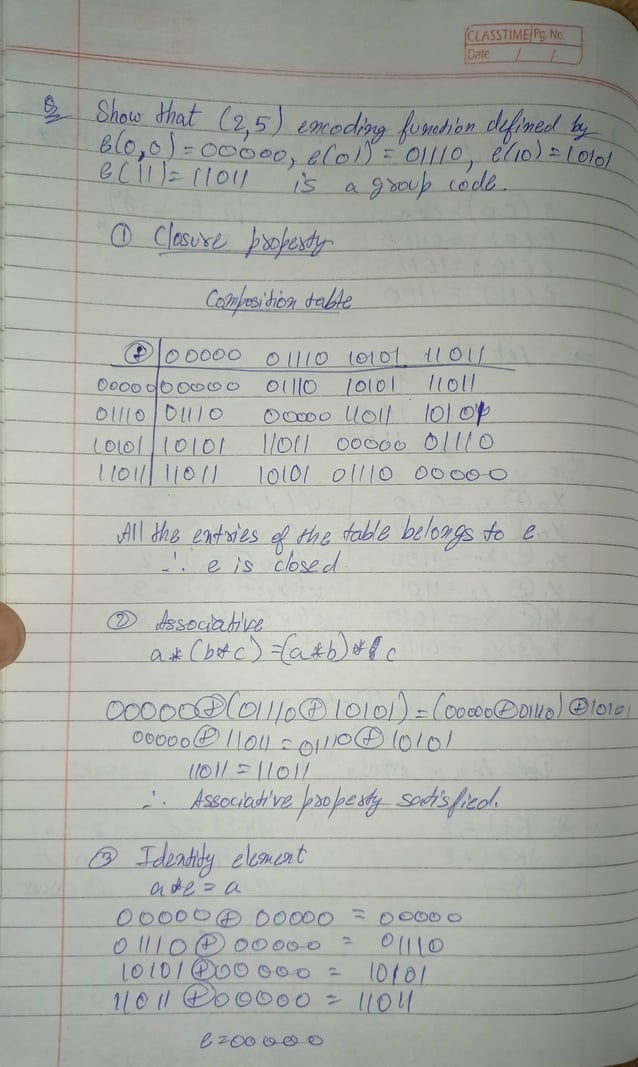 CLASSTIME Pg. No.
Date / /
Q Show that (2,5) encoding function defined by
e(0,0) = 00000, e(01) = 01110, e(10) = 10101
e(11) = 11011 is a group code.
① Closure property
Composition table
⊕ 00000 01110 10101 11011
00000 00000 01110 10101 11011
01110 01110 00000 11011 10101
10101 10101 11011 00000 01110
11011 11011 10101 01110 00000
All the entries of the table belongs to e
∴ e is closed.
② Associative
a * (b * c) = (a * b) * c
00000 ⊕ (01110 ⊕ 10101) = (00000 ⊕ 01110) ⊕ 10101
00000 ⊕ 11011 = 01110 ⊕ 10101
11011 = 11011
∴ Associative property satisfied.
③ Identity element
a * e = a
00000 ⊕ 00000 = 00000
01110 ⊕ 00000 = 01110
10101 ⊕ 00000 = 10101
11011 ⊕ 00000 = 11011
e = 00000